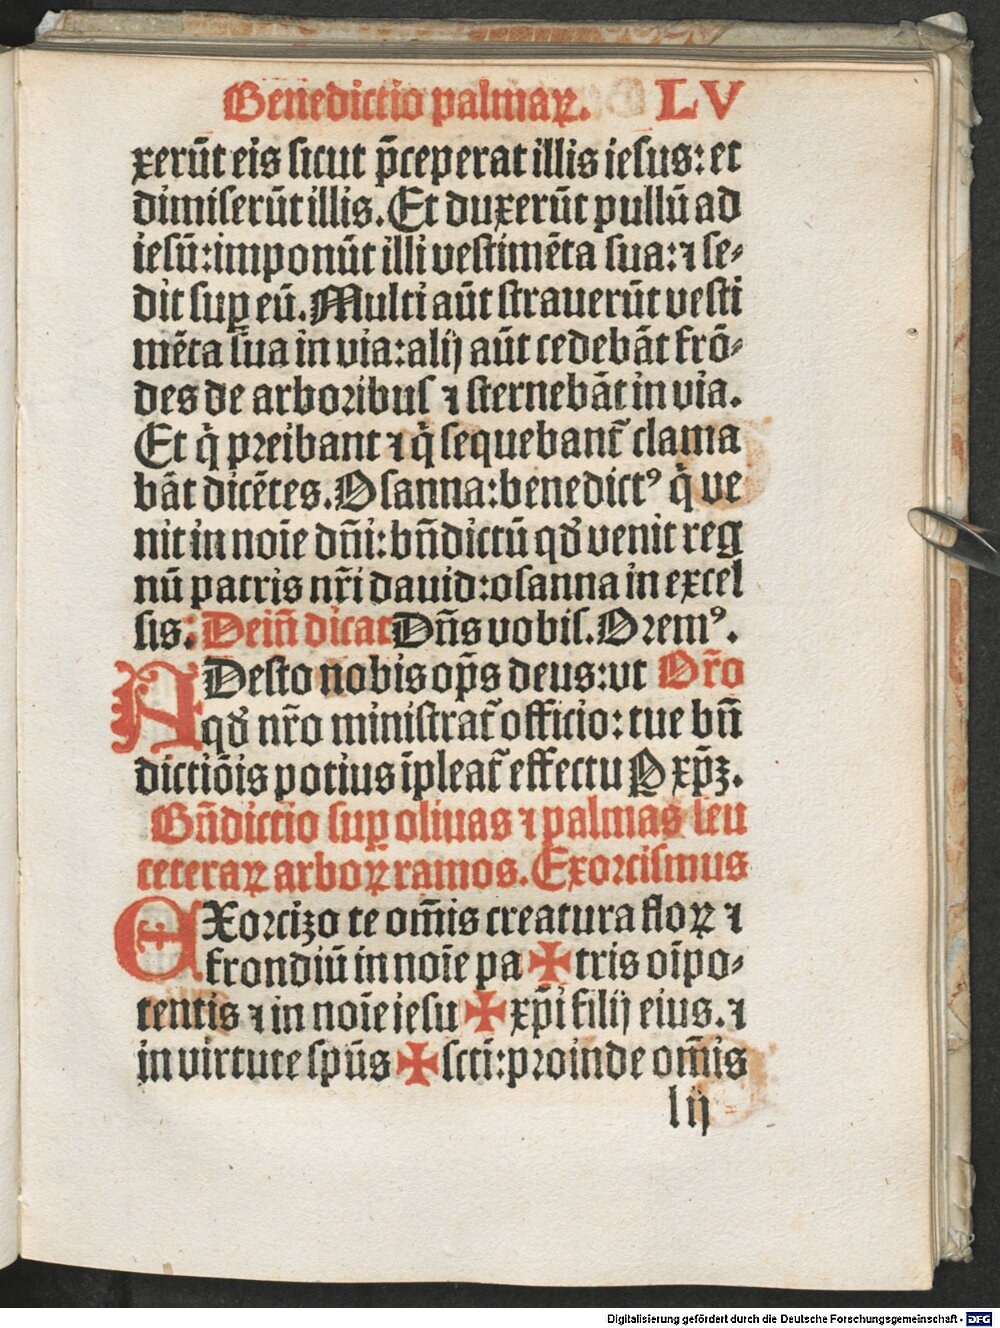 Benedictio palmaꝝ. LV
xerūt eis sicut p̄ceperat illis iesus: et
dimiserūt illis. Et duxerūt pullū ad
iesū: imponūt illi vestimēta sua: ⁊ se⸗
dit suꝑ eū. Multi aūt strauerūt vesti
mēta sua in via: alij aūt cedebāt frō⸗
des de arboribus ⁊ sternebāt in via.
Et q̇ preibant ⁊ q̇ sequebant̃ clama
bāt dicētes. Osanna: benedictꝰ q̇ ve
nit in noīe dn̄i: bn̄dictū qđ venit reg
nū patris nr̄i dauid: osanna in excel
sis. Dein̄ dicat Dn̄s vobis. Oremꝰ.
ADesto nobis op̄s deus: vt Or̄o
qđ nr̄o ministrat̃ officio: tue bn̄
dictiōis potius īpleat̃ effectu P xp̄ꝫ.
Bn̄dictio suꝑ oliuas ⁊ palmas seu
ceteraꝝ arboꝝ ramos. Exorcismus
EXorcizo te om̄is creatura floꝝ ⁊
frondiū in noīe pa ✠ tris oīpo⸗
tentis ⁊ in noīe iesu ✠ xp̄i filij eius. ⁊
in virtute sp̄us ✠ scti: proinde om̄is
l ij
Digitalisierung gefördert durch die Deutsche Forschungsgemeinschaft - DFG